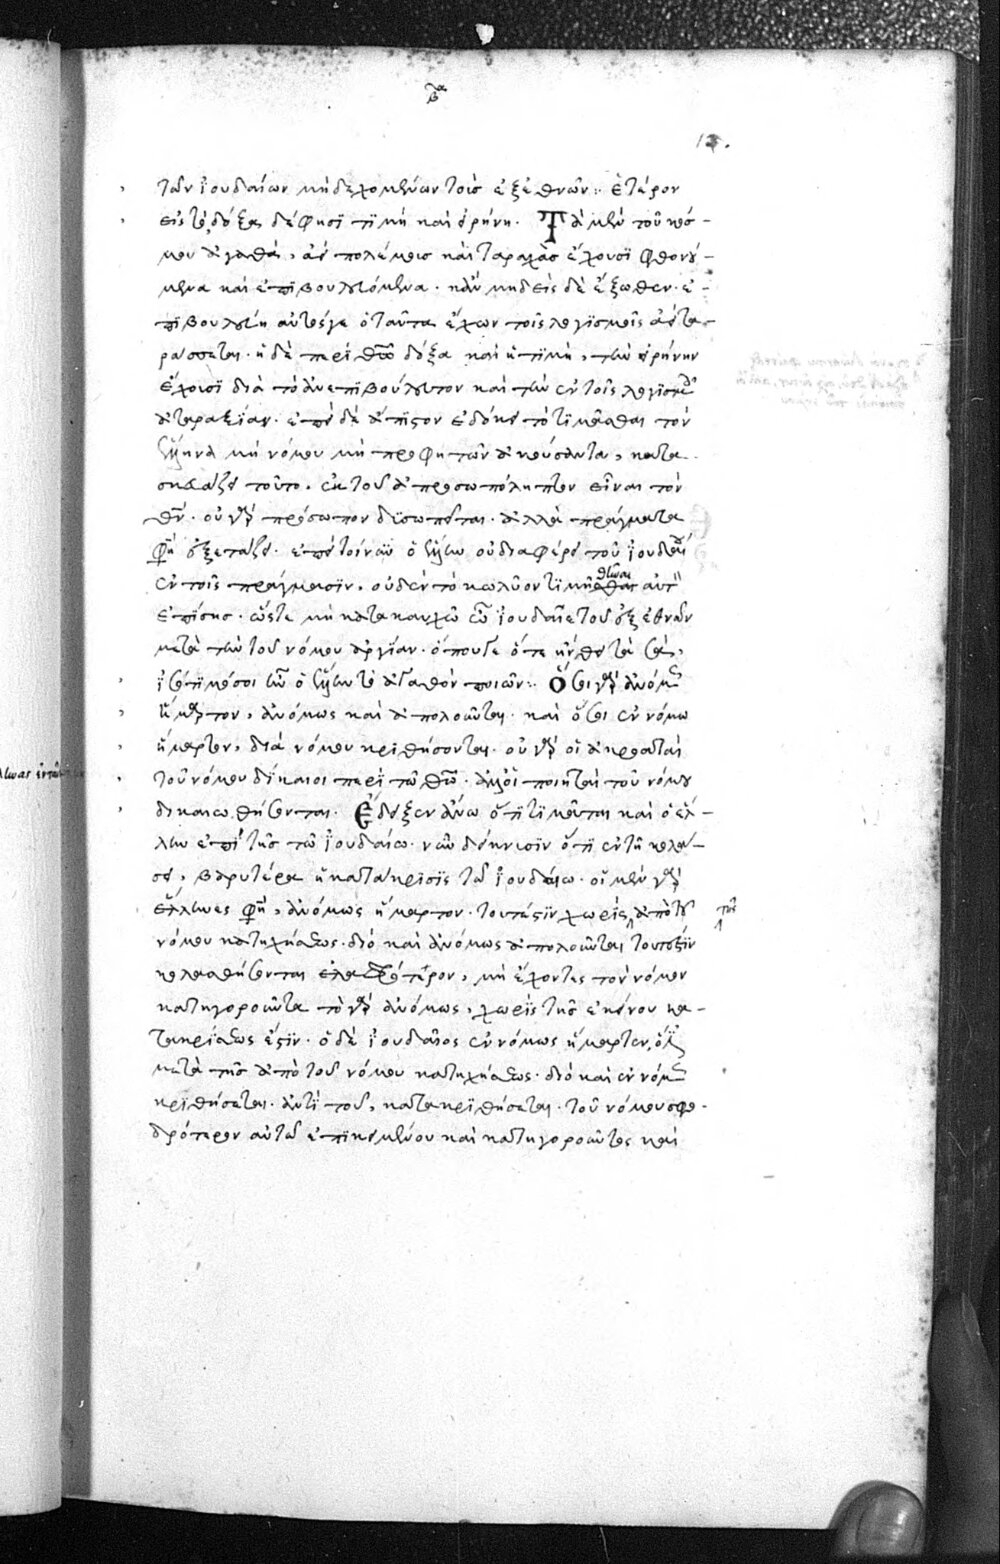 15.
τῶν ἰουδαίων μὴ δεχομένων τοὺς ἐξ ἐθνῶν: ἕτερον
δόξα δέ φησι τιμὴ καὶ εἰρήνη. Τὰ μὲν τοῦ κόσ-
μου ἀγαθὰ, ἀεὶ πολέμους καὶ ταραχὰς ἔχουσι φθονού-
μενα καὶ ἐπιβουλευόμενα. κἂν μηδεὶς δὲ ἔξωθεν ἐ-
πιβουλεύῃ αὐτός γε ὁ ταῦτα ἔχων τοῖς λογισμοῖς ἀεὶ τα-
ράσσεται. ἡ δὲ παρὰ θεῶ δόξα καὶ ἡ τιμὴ, τὴν εἰρήνην
ἔχουσι διὰ τὸ ἀνεπιβούλευτον καὶ τὴν ἐν τοῖς λογισμοῖς
ἀταραξίαν. ἐπεὶ δὲ ἄπιστον ἐδόκει τὸ τιμᾶσθαι τὸν
ἕλληνα μὴ νόμου μὴ προφητῶν ἀκούσαντα, κατα
σκευάζει τοῦτο. ἐκ τοῦ ἀπροσωπόληπτον εἶναι τὸν
θεόν. οὐ γὰρ πρόσωπον ἀλλὰ πράγματα
φησὶ ἐξετάζει. ἐπεὶ τοίνυν ὁ ἕλλην οὐ διαφέρει τοῦ ἰουδαίου
ἐν τοῖς πράγμασιν, οὐδὲν τὸ κωλῦον αὐτὸν
ἐπίσης. ὥστε μὴ κατακαυχῶ ὦ ἰουδαῖε τοῦ ἐξ ἐθνῶν
μετὰ τὴν τοῦ νόμου ἀργίαν.
ἰσότιμός σοι ἦν ὁ ἕλλην τὸ ἀγαθὸν ποιῶν: Ὅσοι γὰρ ἀνόμως
ἥμαρτον, ἀνόμως καὶ ἀπολοῦνται. καὶ ὅσοι ἐν νόμω
ἥμαρτον, διὰ νόμου κριθήσονται. οὐ γὰρ οἱ ἀκροαταὶ
τοῦ νόμου δίκαιοι παρὰ τῶ θεῶ. ἀλλ' οἱ ποιηταὶ τοῦ νόμου
δικαιωθήσονται. Ἔδειξεν ἄνω ὅτι τιμᾶται καὶ ὁ ἕλ-
λην ἐπίσης τῶ ἰουδαίω. νῦν δείκνυσιν ὅτι ἐν τῆ κολά-
σει, βαρυτέρα ἡ κατάκρισις τῶ ἰουδαίω. οἱ μὲν γὰρ
ἕλληνες φησὶ, ἀνόμως ἥμαρτον. τουτέστιν χωρὶς τῆς ἀπὸ τοῦ
νόμου κατηχήσεως. διὸ καὶ ἀνόμως ἀπολοῦνται τουτέστιν
κολασθήσονται ἐλαφρότερον, μὴ ἔχοντες τὸν νόμον
κατηγοροῦντα τὸ γὰρ ἀνόμως, χωρὶς τῆς ἐκείνου κα-
τακρίσεως ἐστιν. ὁ δὲ ἰουδαῖος ἐννόμως ἥμαρτεν,
μετὰ τῆς ἀπὸ τοῦ νόμου κατηχήσεως. διὸ καὶ ἐννόμως
κριθήσεται. ἀντὶ τοῦ, κατακριθήσεται. τοῦ νόμου σφο-
δρότερον αὐτῶ ἐπικειμένου καὶ κατηγοροῦντος καὶ